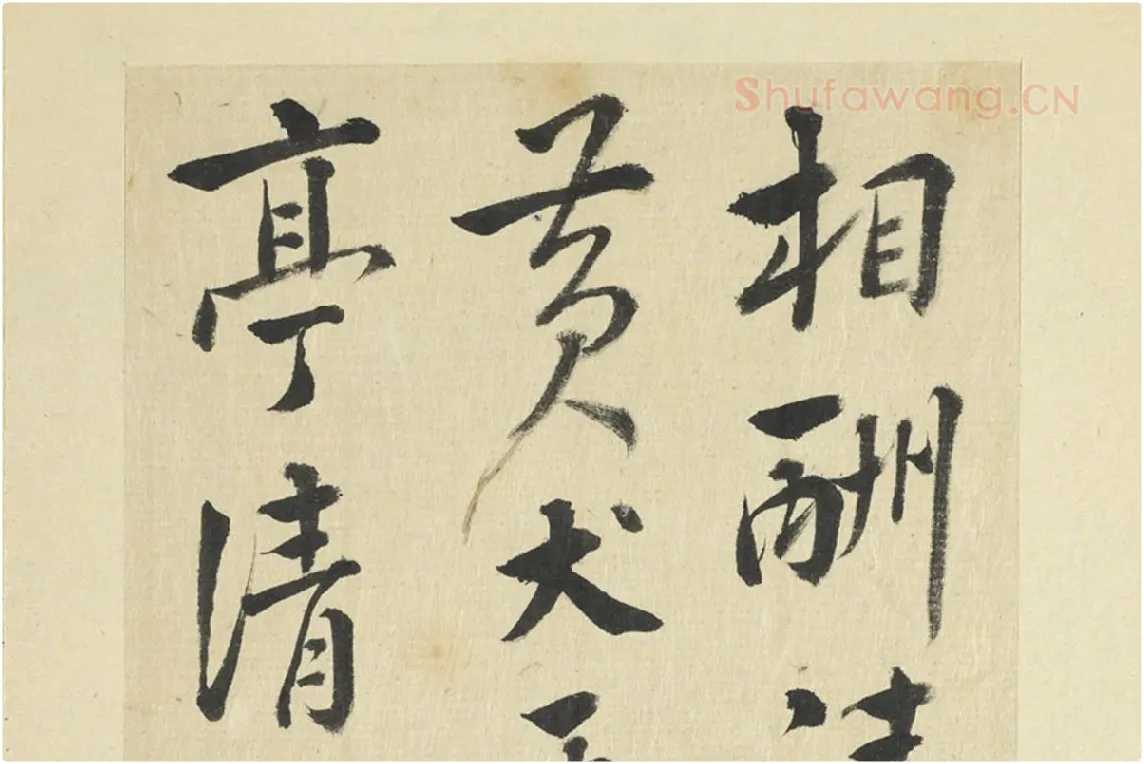 Shufawang.CN
相酬
黄犬
亭清